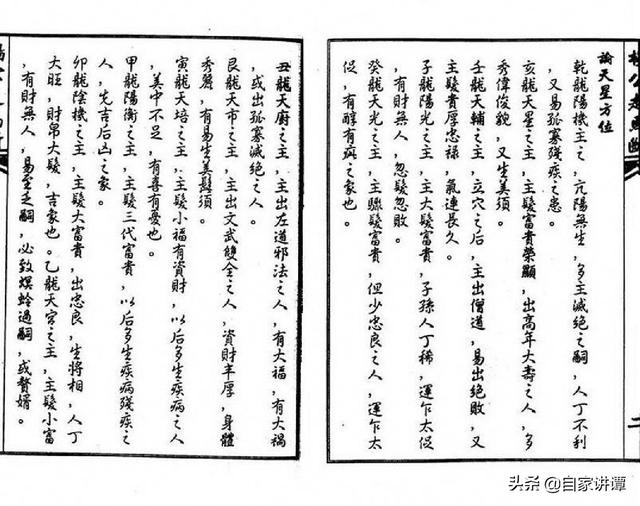 論天星方位
乾龍陽機主之，亢陽無生，多主滅絕之嗣，人丁不利
，又易孤寡殘疾之患。
亥龍天星之主，主發富貴榮顯，出高年大壽之人，多
秀偉俊貌，又生美須。
壬龍天輔之主，立穴之后，主出僧道，易出絕敗，又
主髮貴厚忠祿，氣連長久。
子龍陽光之主，主大髮富貴，子孫人丁稀，運乍太促
，有財無人，忽髮忽敗。
癸龍天光之主，主驟髮富貴，但少忠良之人，運乍太
促，有醇有疵之家也。
丑龍天廚之主，主出左道邪法之人，有大福，有大禍
，或出孤寡滅絕之人。
艮龍天市之主，主出文武雙全之人，資財丰厚，身體
秀麗，有易生美髮須。
寅龍天培之主，主髮小福有資財，以后多生疾病之人
，美中不足，有喜有憂也。
甲龍陽衡之主，主髮三代富貴，以后多生疾病殘疾之
人，先吉后凶之家。
卯龍陰機之主，主髮大富貴，出忠良，生將相，人丁
大旺，財帛大髮，吉家也。乙龍天官之主，主髮小富
，有財無人，易至乏嗣，必致螟蛉過嗣，或贅婿。
头条 @自家讲谭